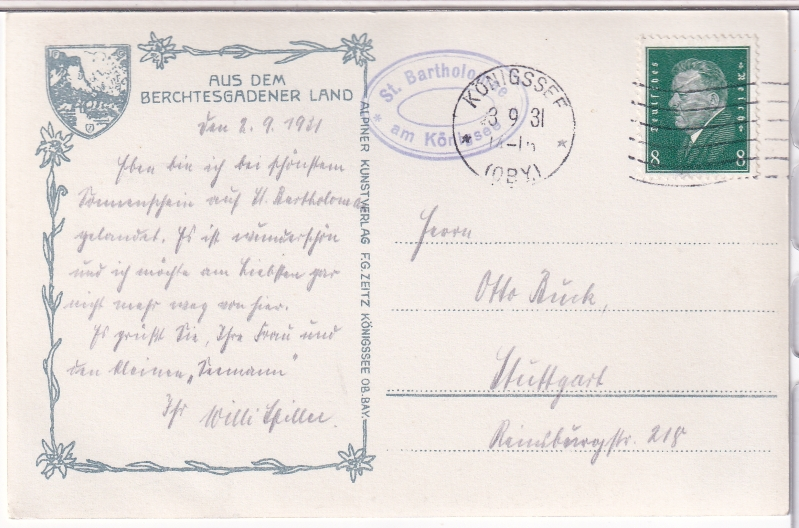 AUS DEM
BERCHTESGADENER LAND
den 2. 9. 1931
Eben bin ich bei schönstem
Sonnenschein auf St. Bartholomä
gelandet. Es ist wunderschön
und ich möchte am liebsten gar
nicht mehr weg von hier.
Es grüßt Sie, Ihre Frau und
den kleinen „Seemann"
Ihr Willi
ALPINER KUNSTVERLAG F.G. ZEITZ KÖNIGSSEE OB.BAY.
St. Bartholomae
am Königssee
KÖNIGSSEE
3 9 31
(OBY)
Deutsches
Reich
8 8
Herrn
Otto Kuck,
Stuttgart
Reinsburgstr. 218